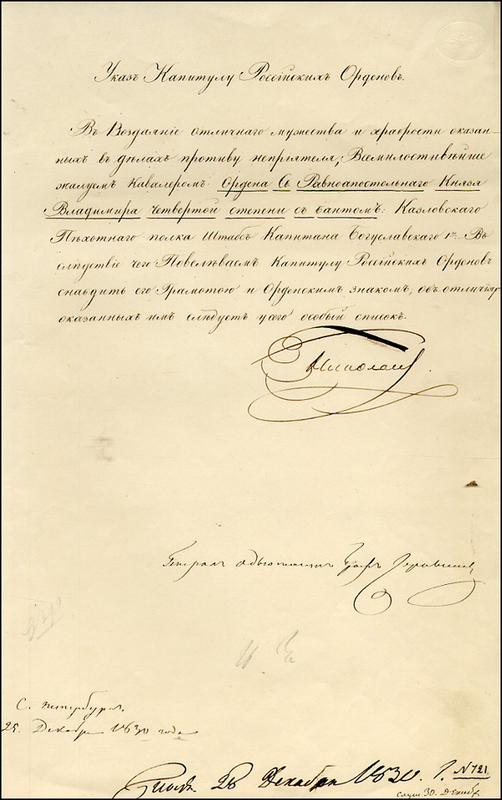 Указъ Капитулу Россійскихъ Орденовъ.
Въ Воздаяніе отличнаго мужества и храбрости оказан-
ныхъ въ дѣлахъ противу непріятеля, Всемилостивѣйше
жалуемъ Кавалеромъ Ордена Св Равноапостольнаго Князя
Владимира четвертой степени съ бантомъ: Казловскаго
Пѣхотнаго полка Штабсъ Капитана Богуславскаго 1го. Въ
слѣдствіе чего Повелѣваемъ Капитулу Россійскихъ Орденовъ
снабдить его Грамотою и Орденскимъ знакомъ, объ отличіи
оказанныхъ имъ слѣдуетъ у сего особый списокъ.
Николай
Генералъ адъютантъ Графъ
С. Петербургъ.
25 Декабря 1830 года
26 Декабря 1830. г. N 721
30. Декабр